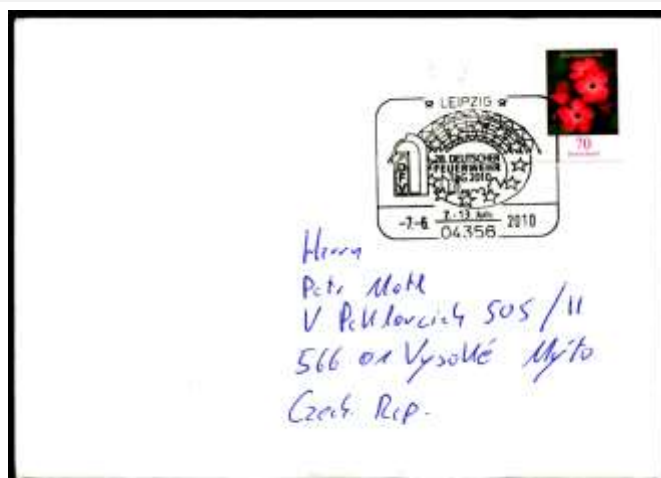 LEIPZIG
28. DEUTSCHER
FEUERWEHR
TAG 2010
-7.-6. 7.-13. Juni 2010
04356
70
Herrn
Petr Motl
V Peklovcich 505/II
566 01 Vysoké Mýto
Czech. Rep.